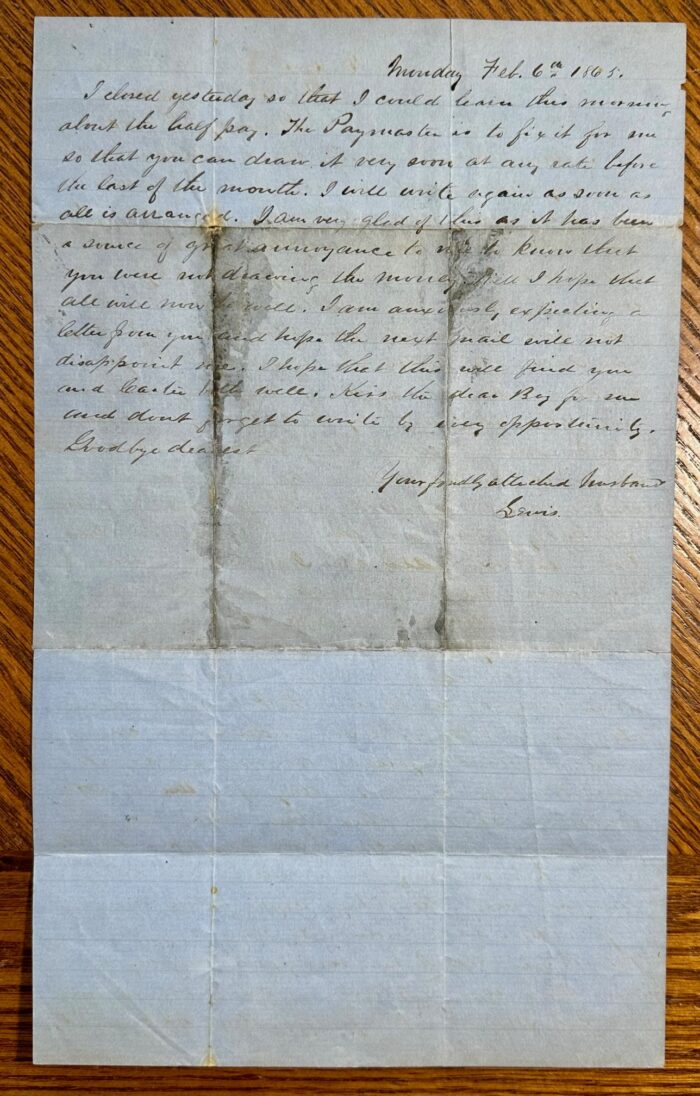 Monday Feb. 6th 1865.
I closed yesterday so that I could learn this morning
about the half pay. The Paymaster is to fix it for me
so that you can draw it very soon at any rate before
the last of the month. I will write again as soon as
all is arranged. I am very glad of this as it has been
a source of great annoyance to me to know that
you were not drawing the money. Still I hope that
all will now be well. I am anxiously expecting a
letter from you and hope the next mail will not
disappoint me. I hope that this will find you
and both well. Kiss the dear Boy for me
and dont forget to write by every opportunity.
Goodbye dearest
Your fondly attached husband
Lewis.